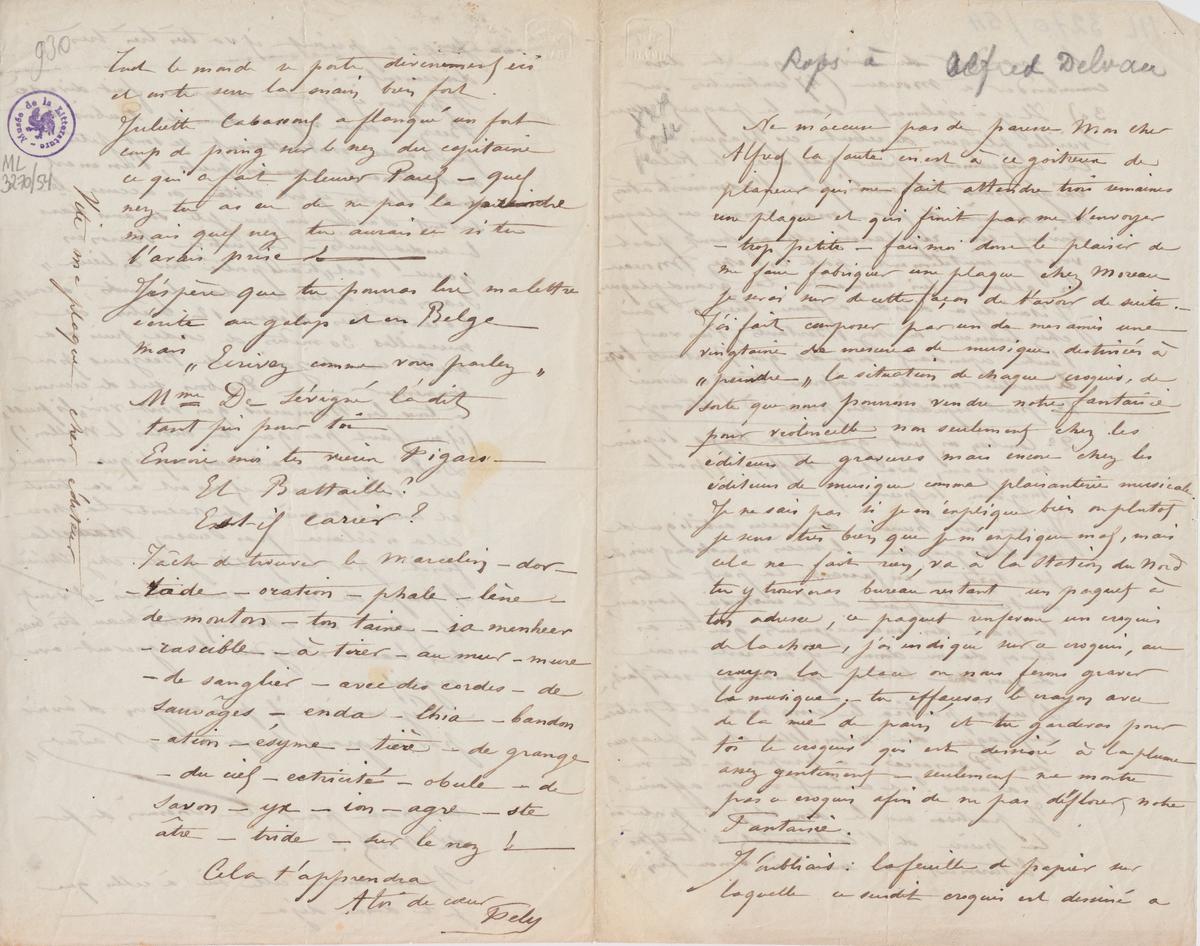 Rops à Alfred Delvau
Ne m'accuse pas de paresse Mon cher
Alfred la faute en est à ce goitreux de
planeur qui me fait attendre trois semaines
une plaque et qui finit par me l'envoyer
– trop petite – fais moi donc le plaisir de
me faire fabriquer une plaque chez Moreau
Je serai sûr de cette façon de l'avoir de suite. –
J'ai fait composer par un de mes amis une
vingtaine de mesures de musique destinées à
„ peindre „ la situation de chaque croquis, de
sorte que nous pourrons vendre notre fantaisie
pour violoncelle non seulement chez les
éditeurs de gravures mais encore chez les
éditeurs de musique comme plaisanterie musicale
Je ne sais pas si je m'explique bien ou plutot
je sens très bien que je m'explique mal, mais
cela ne fait rien, va à la Station du Nord
tu y trouveras bureau restant un paquet à
ton adresse, ce paquet renferme un croquis
de la chose, j'ai indiqué sur ce croquis, au
crayon la place ou nous ferons graver
la musique, – tu effaceras le crayon avec
de la mie de pain et tu garderas pour
toi le croquis qui est dessiné à la plume
assez gentiment – seulement ne montre
pas ce croquis afin de ne pas déflorer notre
Fantaisie.
J'oubliais : la feuille de papier sur
laquelle ce susdit croquis est dessiné a
930
Musée de la Littérature
ML
3270/54
Tout le monde se porte divinement ici
et te serre la main bien fort.
Juliette a flanqué un fort
coup de poing sur le nez du capitaine
ce qui a fait pleurer Paul – quel
nez tu as eu de ne pas la
mais quel nez tu aurais eu si tu
l'avais prise !
J'espère que tu pourras lire ma lettre
écrite au galop et en Belge
mais
„ Ecrivez comme vous parlez „
Mme De Sévigné l'a dit
tant pis pour toi
Envoie moi tes vieux Figaro
Et Battaille ?
Est-il casier ?
Tâche de trouver le Marcelin – dor –
– ade – oration – phale – lène –
de mouton – ton taine – ia menheer
– rascible – à tirer – au mur – mure
– de sanglier – avec des cordes – de
Sauvages – enda – lhia – bandon
– ation – esyme – tière – de grange
– du ciel – ectricité – obule – de
savon – yx – ion – agre – ste
âtre – bride – sur le nez !
Cela t'apprendra
A toi de cœur
Fély
Vite ma plaque cher éditeur